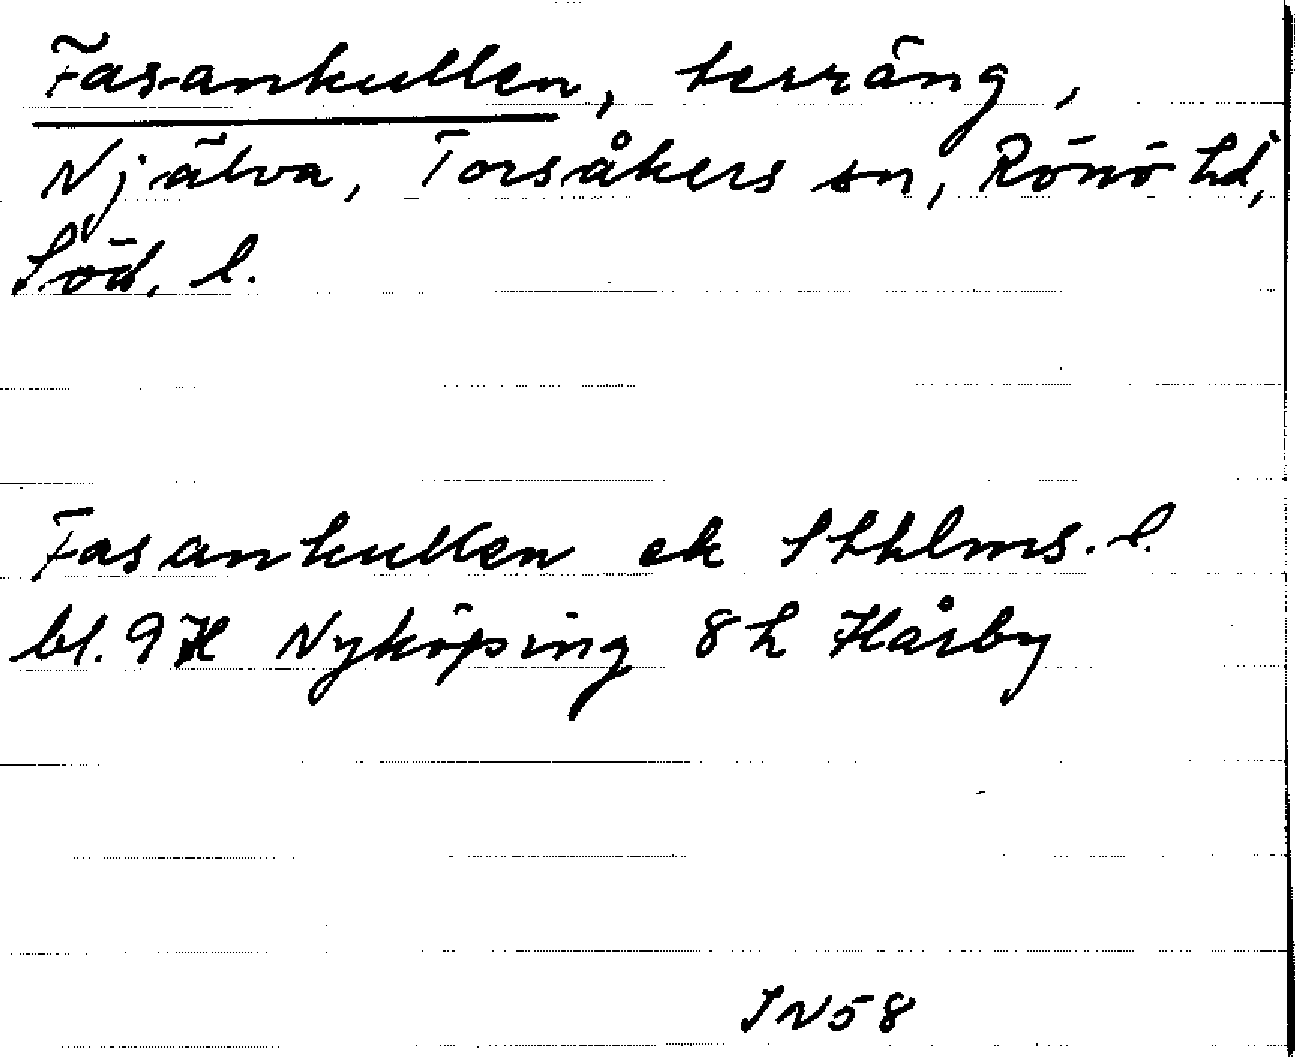 Fasankullen, terräng,
Njälva, Torsåkers sn, Rönö hd,
Söd. l.
Fasankullen ek Sthlms. l.
bl. 9H Nyköping 8h Hårby
IN58